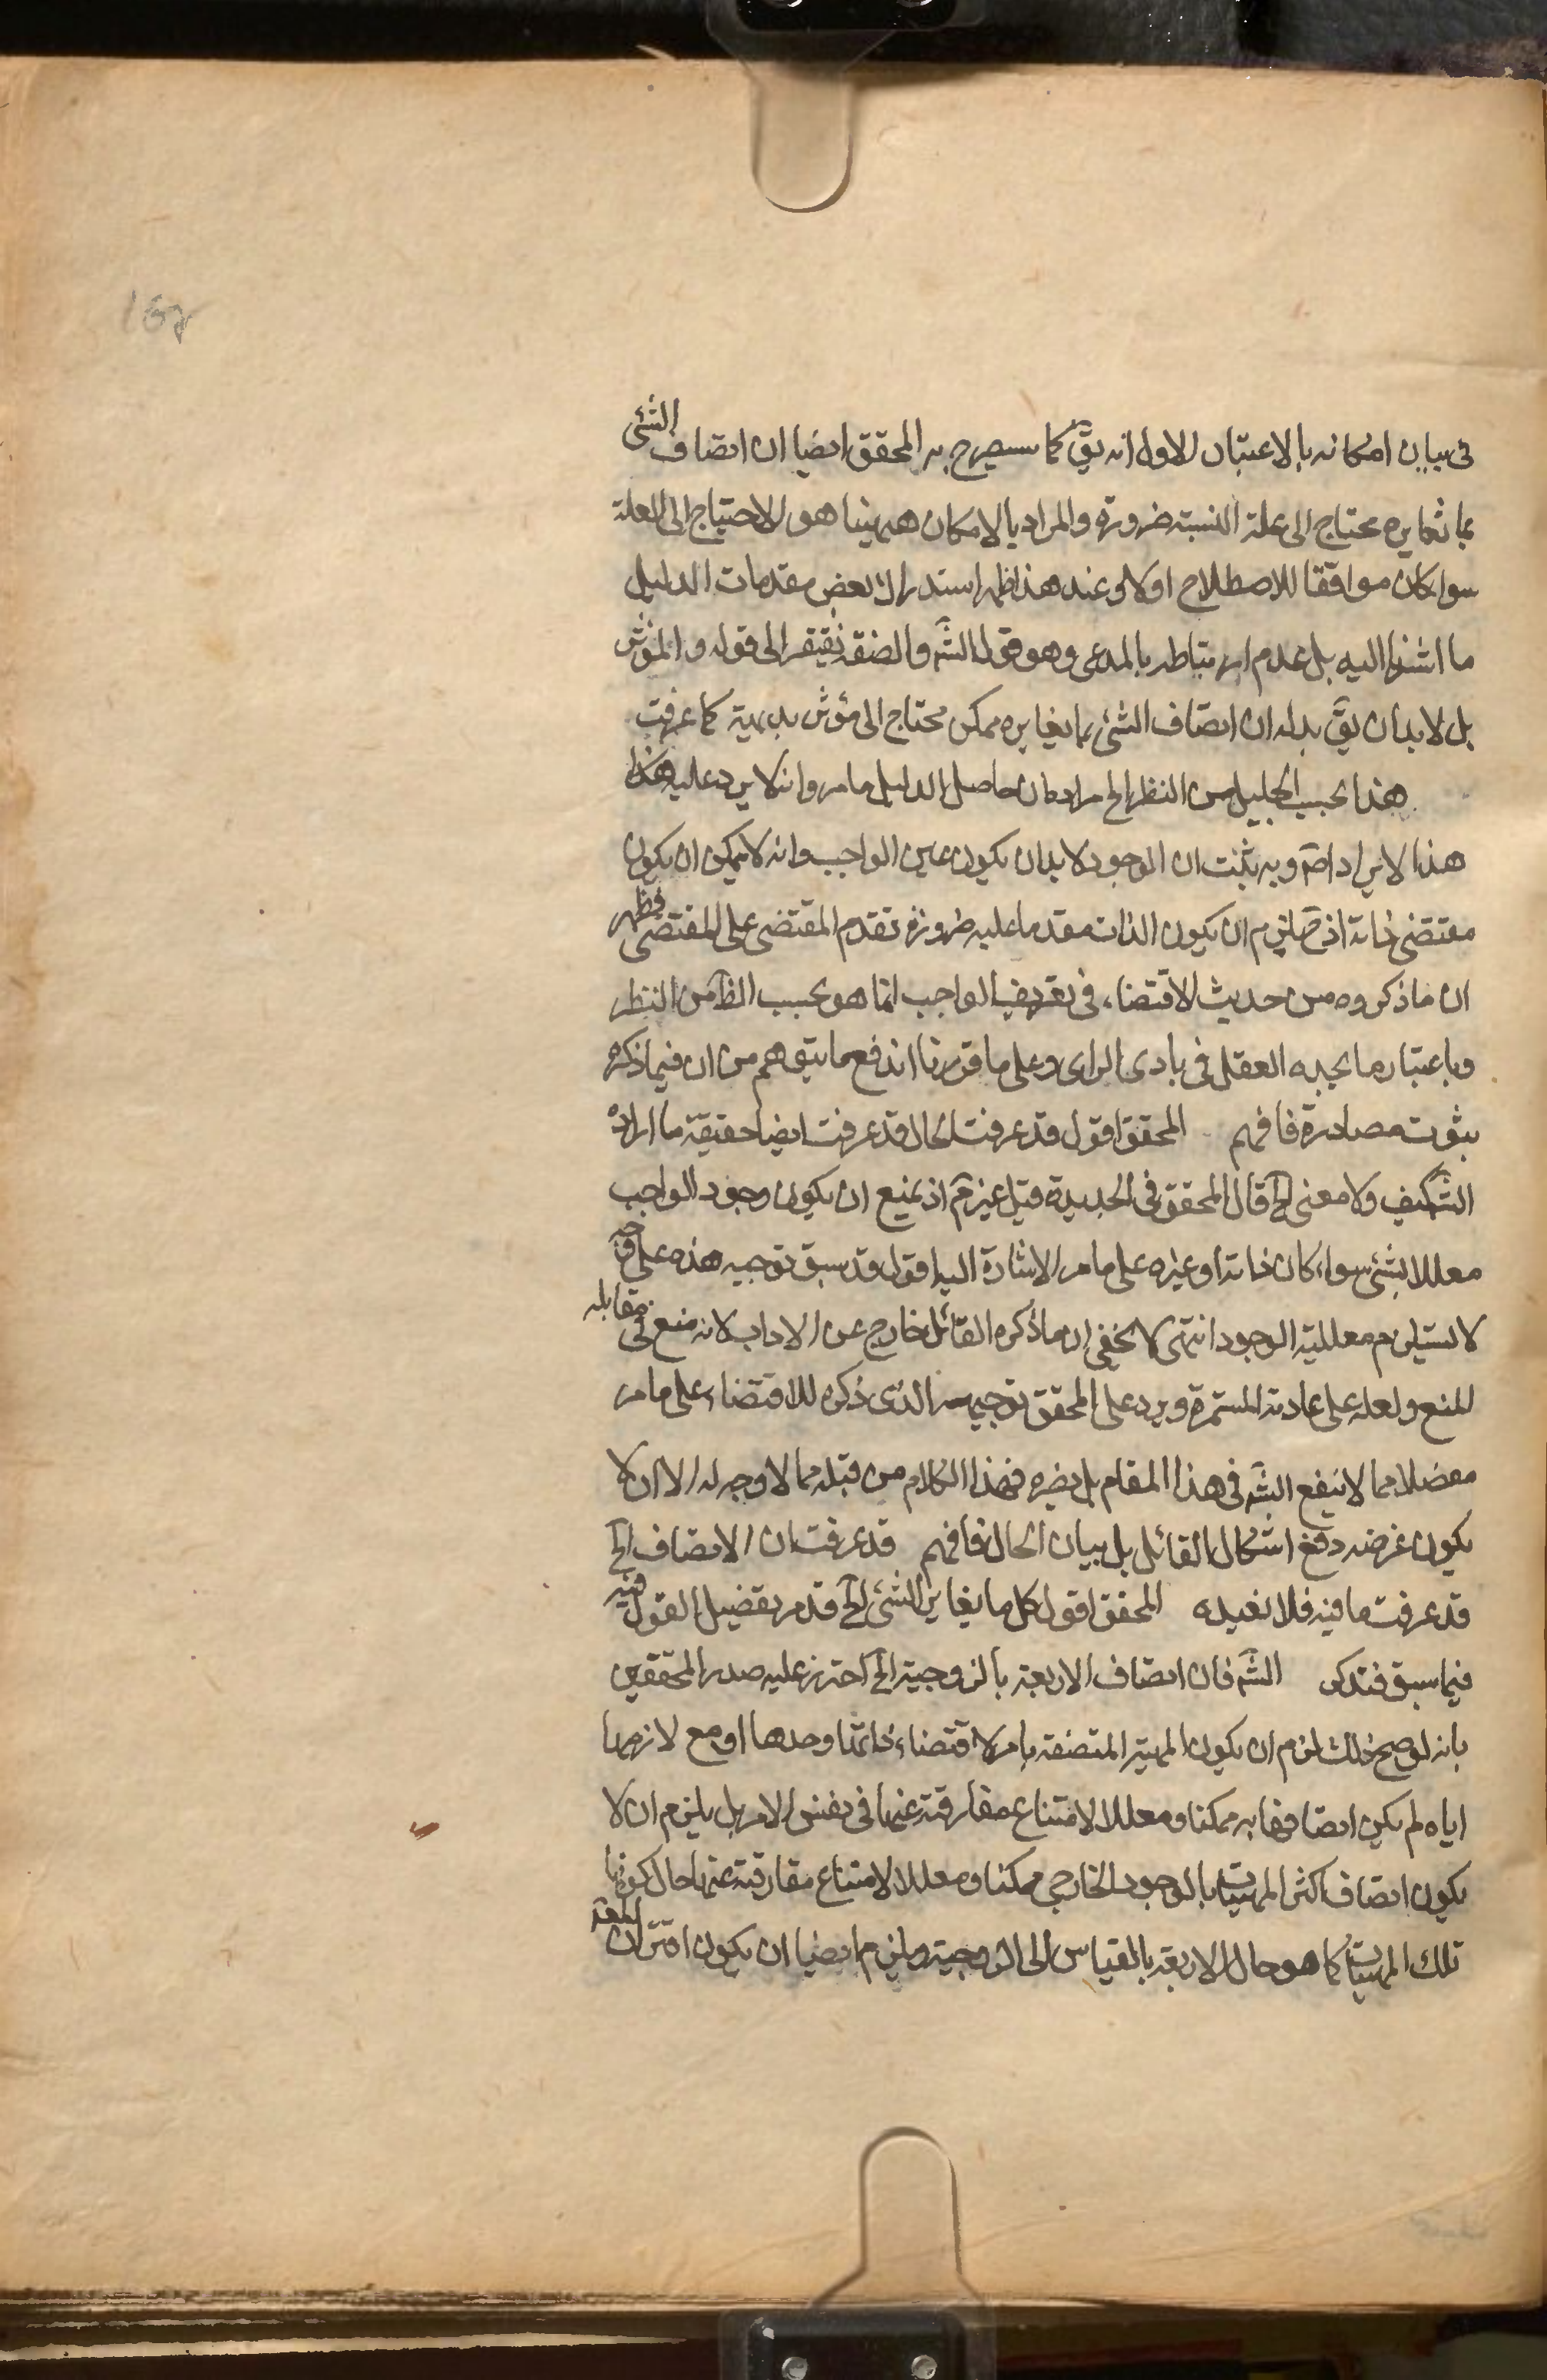 167
فى بيان امكانه بالاعتبار الاول انه يقّ كما سيصرح به المحقق ايضا ان اتصاف الشئ
بما تغايره محتاج الى علة النسبته ضرورة والمراد بالامكان ههينا هو الاحتياج الى العلة
سواء كان موافقا للاصطلاح او لا وعند هذا ظهر استدراك بعض مقدمات الدليل
ما اشرنا اليه بل عدم ارتباطه بالمدعى وهو قول الشّه والصفة تفتقر الى قوله والمؤثر
بل لا بد ان يقّ بدله ان اتصاف الشئ بما يغايره ممكن محتاج الى مؤثر بديهية كما عرفت
هذا بحسب الجليل من النظر الخ مراده ان حاصل الدليل ما مر وانه لا يرد عليه هكذا
هذا الايراد اصّ وبه يثبت ان الوجود لا بد ان يكون عين الواجب وانه لا يمكن ان يكون
مقتضى ذاته اذ حّ يلزم ان يكون الذات مقدما عليه ضرورة تقدم المقتضى على المقتضى فظهر
ان ما ذكروه من حديث الاقتضاء، فى تعريف الواجب انما هو بحسب الظّ من النظر
وباعتبار ما يجده العقل فى بادى الراى وعلى ما قررنا اندفع ما يتوهم من ان فيما ذكره
بثوت مصادرة فافهم المحقق اقول قد عرفت الحال قد عرفت ايضا حقيقة ما اراده
الشّ كيف ولا معنى الخ قال المحقق فى الجديدة قيل غير مّ اذ يمنع ان يكون وجود الواجب
معللا بشئ سواء كان ذاته او غيره على ما مر الاشارة اليه اقول قد سبق توجيه هذه على وجه
لا يستلزم معللية الوجود انتهى لا يخفى ان ما ذكره القائل خارج عن الاداب لانه منع فى مقابلة
المنع ولعله على عادته المستمرة ويرد على المحقق توجيه الذى ذكره للاقتضاء، على ما مر
مفصلا مما لا ينفع الشّه فى هذا المقام بل يضره فهذا الكلام من قبله مما لا وجه له الا ان لا
يكون غرضه دفع اشكال القائل بل بيان الحال فافهم قد عرفت ان الاتصاف الخ
قد عرفت ما فيه فلا نعيده المحقق اقول كل ما يغاير الشئ الخ قد مر تفصيل القول فيه
فيما سبق فتدكر الشّه فان اتصاف الاربعة بالزوجية الخ احترز عليه صدر المحققين
بانه لو صح ذلك لزم ان يكون المهية المتصفة بامر لاقتضاء، ذاتها وحدها او مع لازمها
اياه لم يكن اتصافها به ممكنا ومعللا لامتناع مفارقته عنها فى نفس الامر بل يلزم ان لا
يكون اتصاف اكثر المهيات بالوجود الخارجي ممكنا ومعللا لامتناع مفارقته عنها حال كونها
تلك المهيات كما هو حال الاربعة بالقياس الى الزوجية ويلزم ايضا ان يكون اقتران